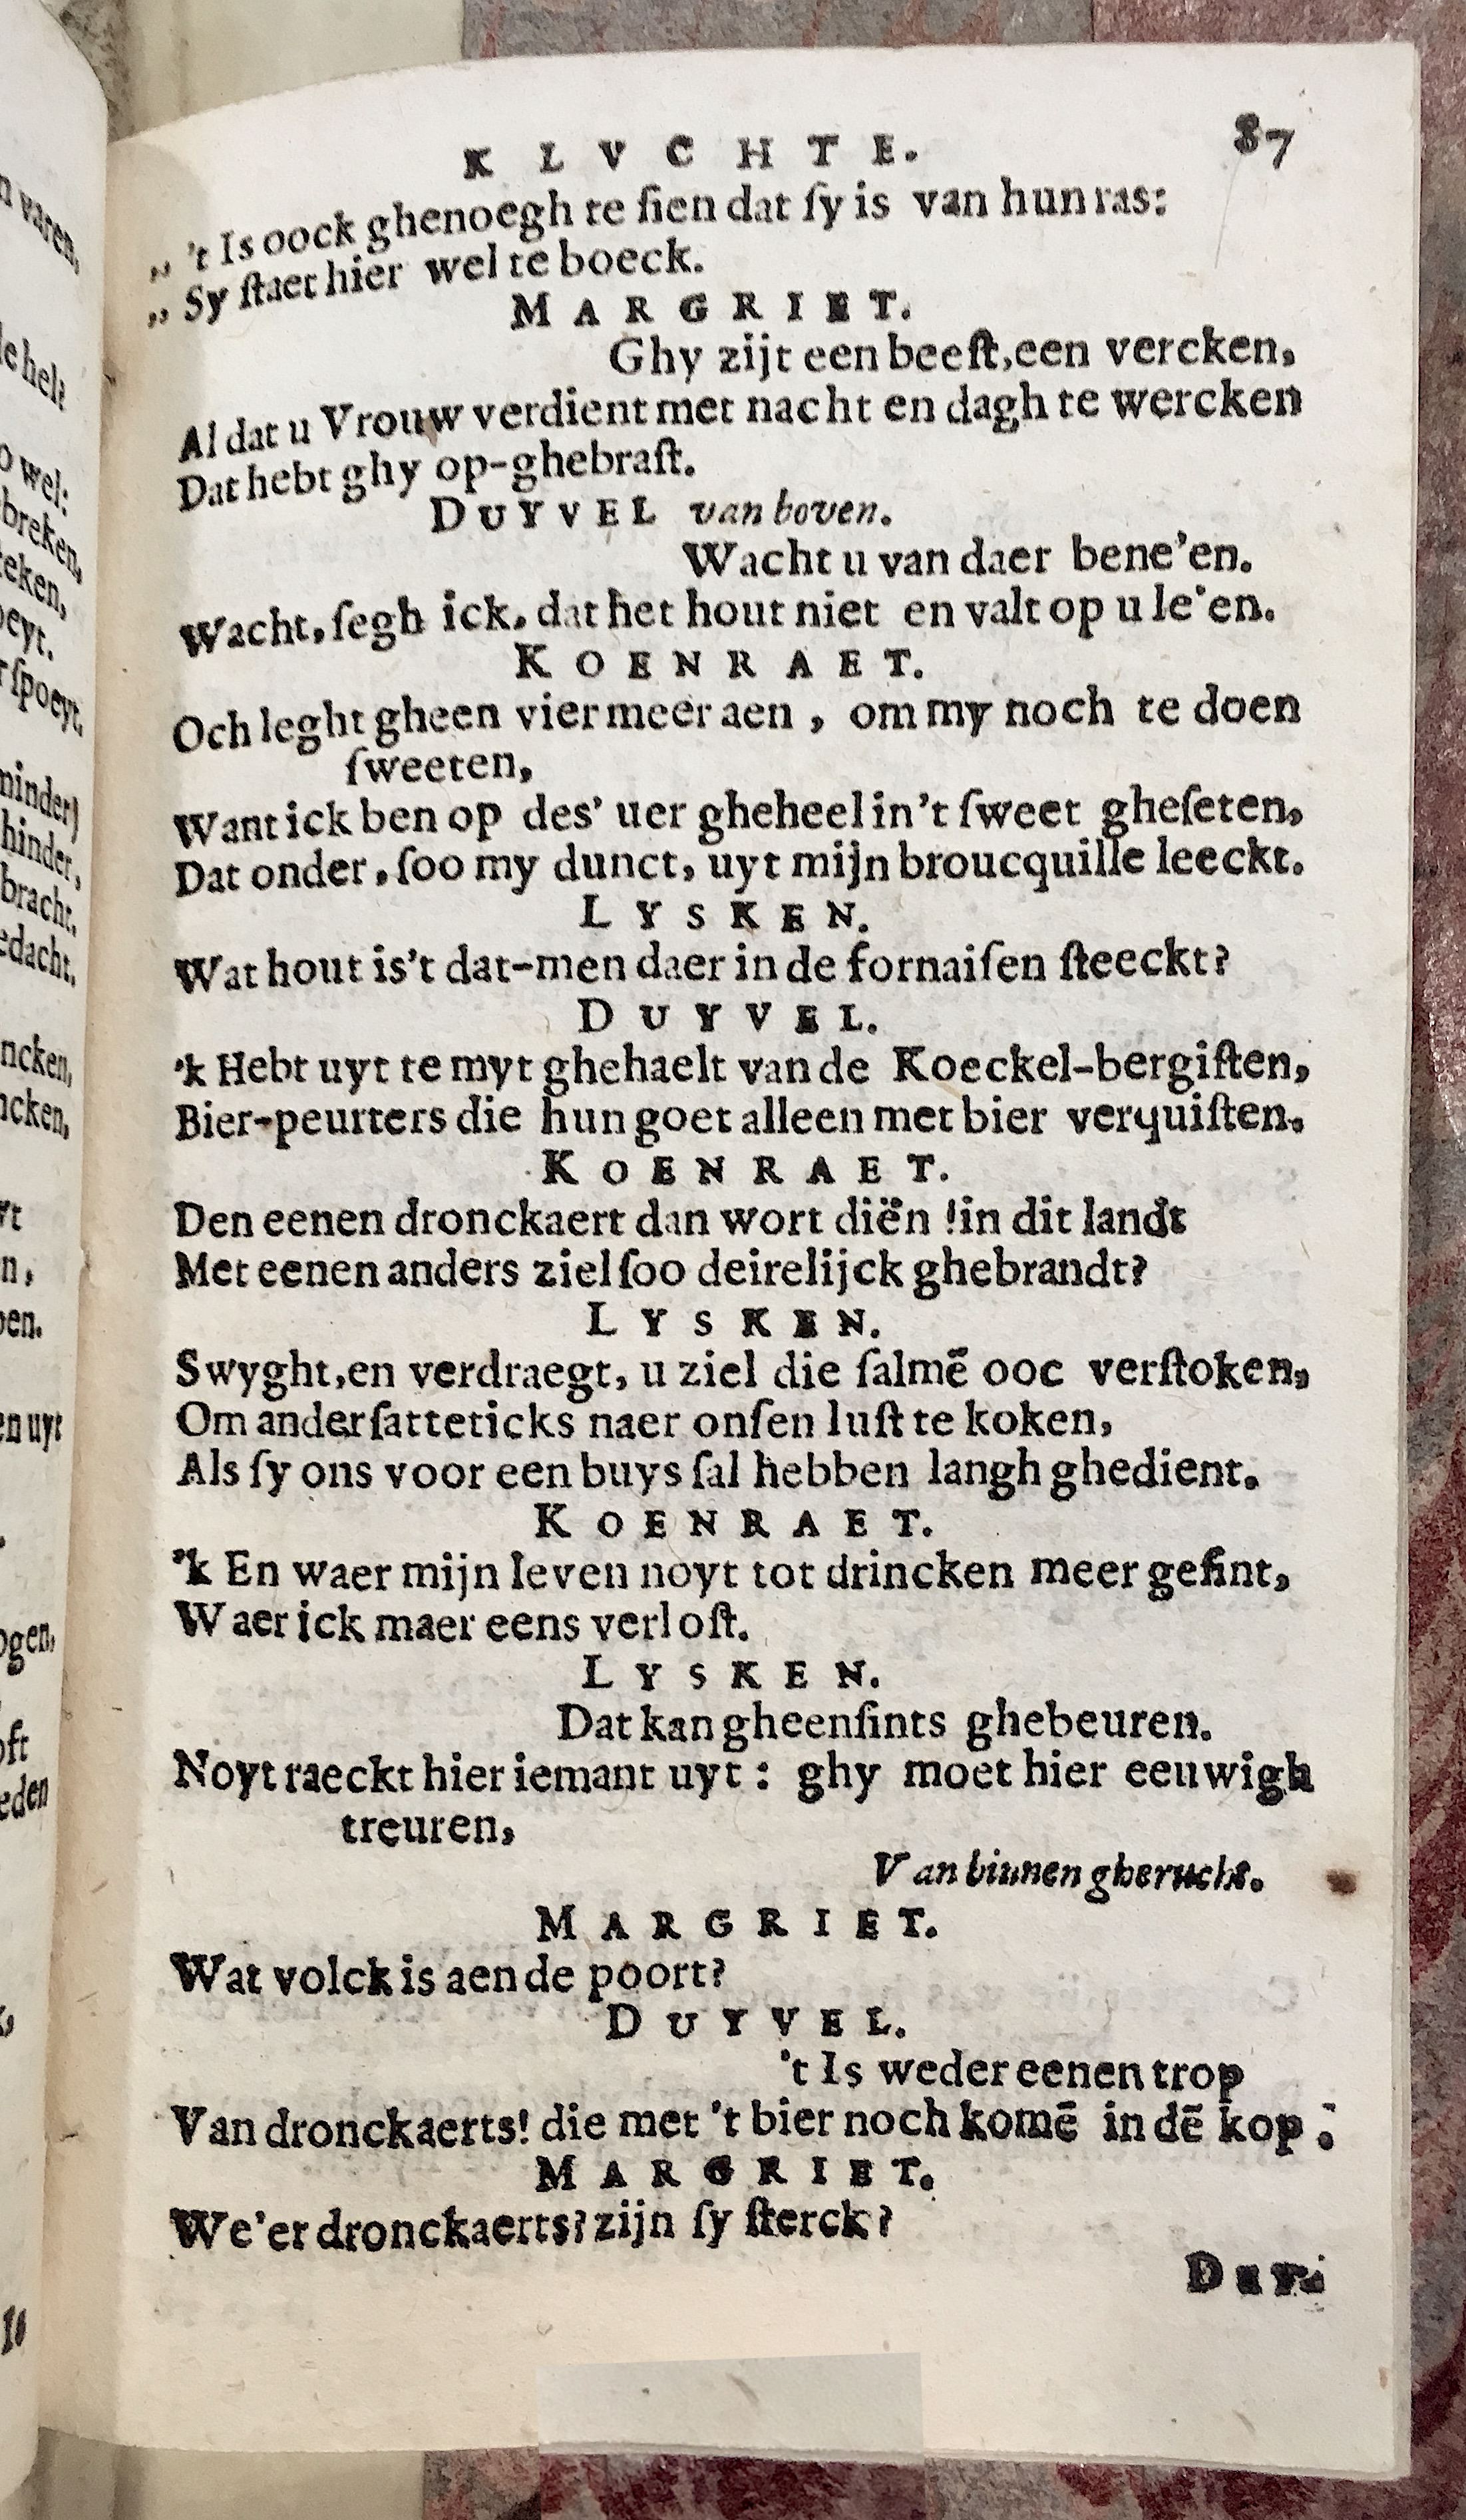 K L V C H T E.
87
„ 't Is oock ghenoegh te ſien dat ſy is van hun ras:
„ Sy ſtaet hier wel te boeck.
MARGRIET.
Ghy zijt een beeſt, een vercken,
Al dat u Vrouw verdient met nacht en dagh te wercken
Dat hebt ghy op-ghebraſt.
DUYVEL van boven.
Wacht u van daer bene'en.
Wacht, ſegh ick, dat het hout niet en valt op u le'en.
KOENRAET.
Och leght gheen vier meer aen, om my noch te doen
ſweeten,
Want ick ben op des' uer gheheel in't ſweet gheſeten,
Dat onder, ſoo my dunct, uyt mijn broucquille leeckt.
LYSKEN.
Wat hout is't dat-men daer in de fornaiſen ſteeckt?
DUYVEL.
'k Hebt uyt te myt ghehaelt van de Koeckel-bergiſten,
Bier-peurters die hun goet alleen met bier verquiſten.
KOENRAET.
Den eenen dronckaert dan wort diën !in dit landt
Met eenen anders ziel ſoo deirelijck ghebrandt?
LYSKEN.
Swyght, en verdraegt, u ziel die ſalmē ooc verſtoken,
Om ander ſatteticks naer onſen luſt te koken,
Als ſy ons voor een buys ſal hebben langh ghedient.
KOENRAET.
'k En waer mijn leven noyt tot drincken meer geſint,
Waer ick maer eens verloſt.
LYSKEN.
Dat kan gheenſints ghebeuren.
Noyt raeckt hier iemant uyt : ghy moet hier eeuwigh
treuren,
Van binnen gherucht.
MARGRIET.
Wat volck is aen de poort?
DUYVEL.
't Is weder eenen trop
Van dronckaerts! die met 't bier noch komē in dē kop.
MARGRIET.
We'er dronckaerts? zijn ſy ſterck?
Duy-
n varen,
de hel:
o wel:
breken,
teken,
oeyt.
r ſpoeyt.
minder)
hinder,
bracht.
edacht.
ncken,
ncken,
n,
pen.
en uyt
ogen,
eden